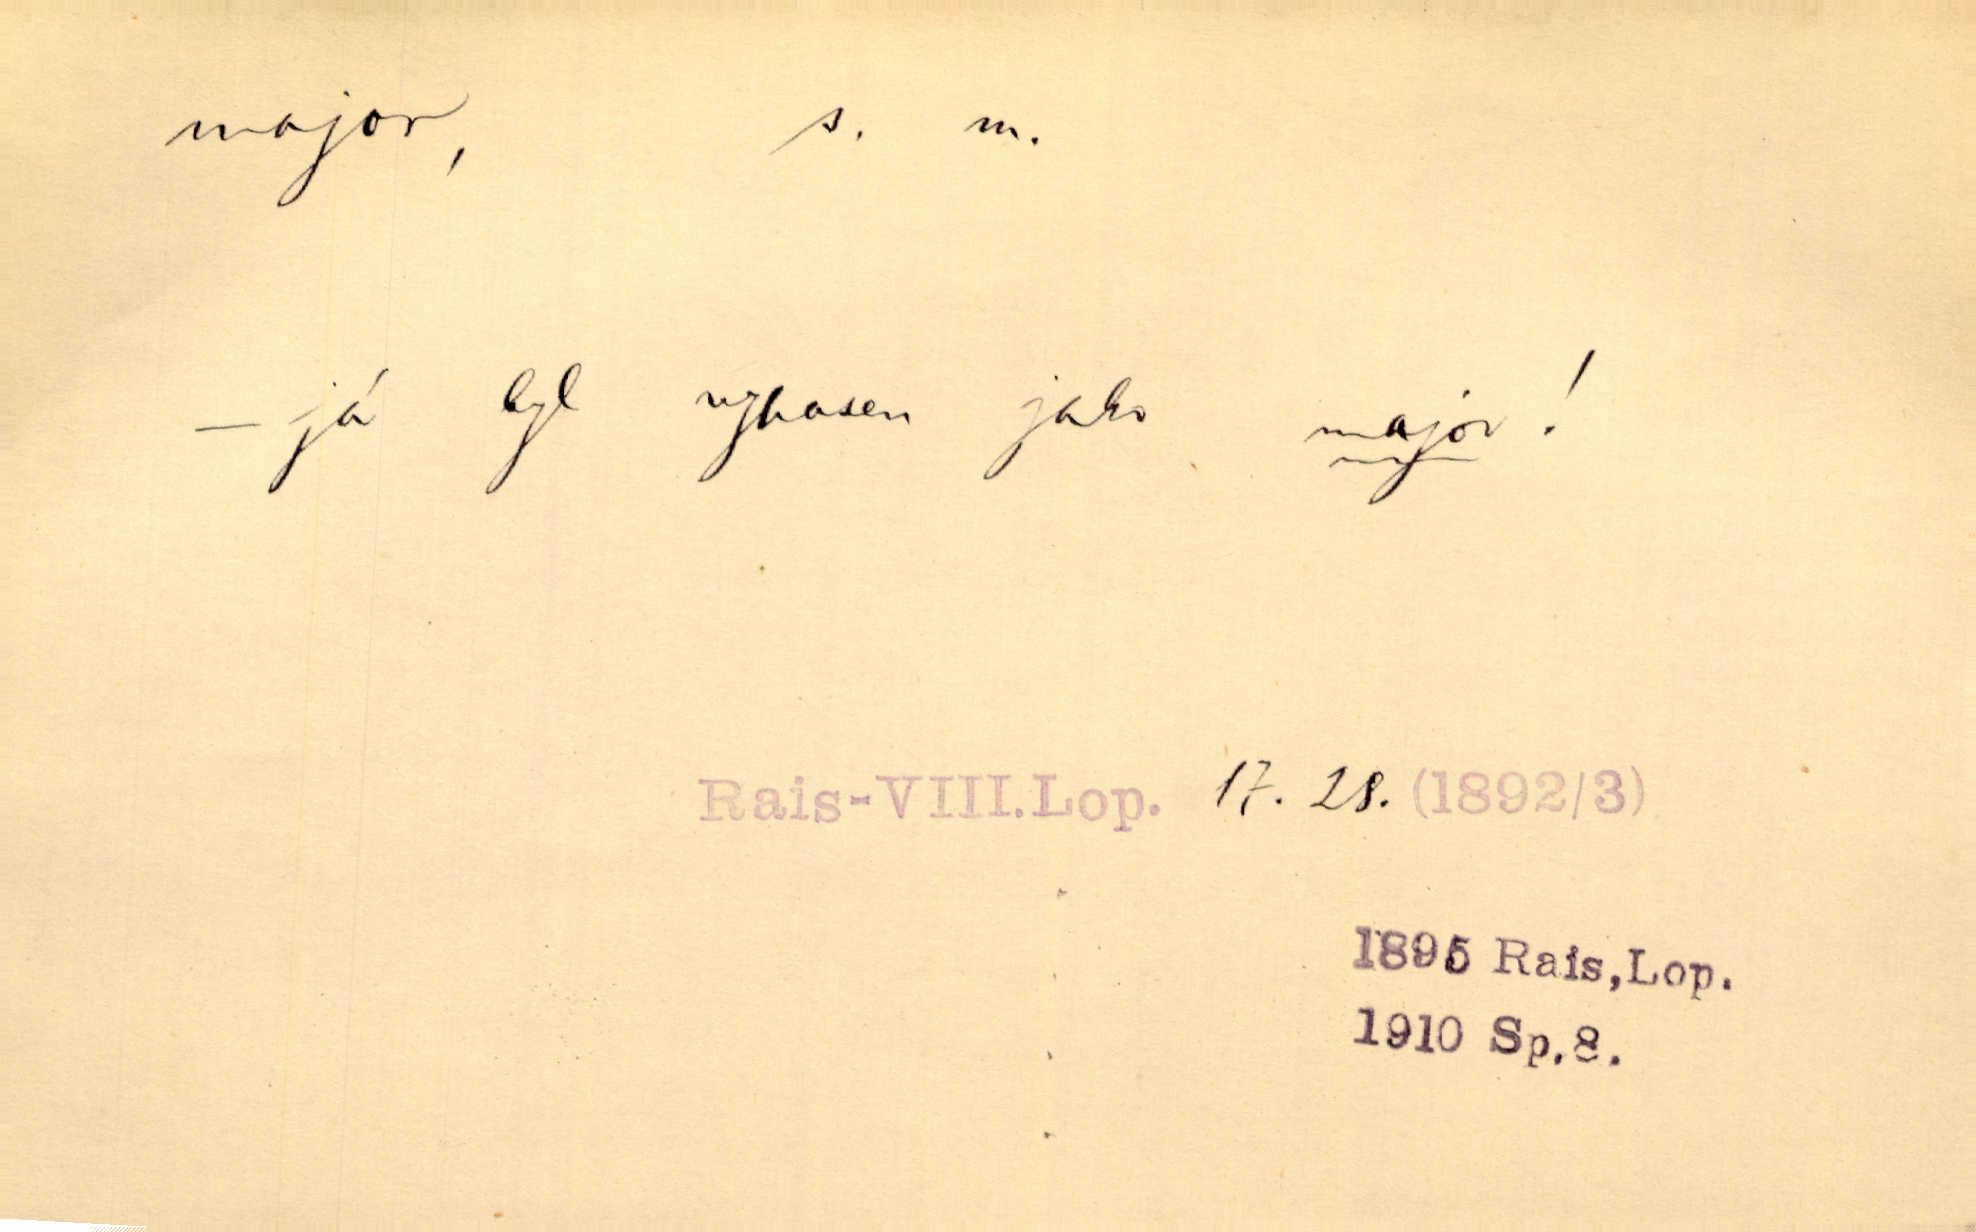 major, s. m.
— já byl vyhasen jako major!
Rais-VIII.Lop. 17. 28. (1892/3)
1895 Rais,Lop.
1910 Sp.8.